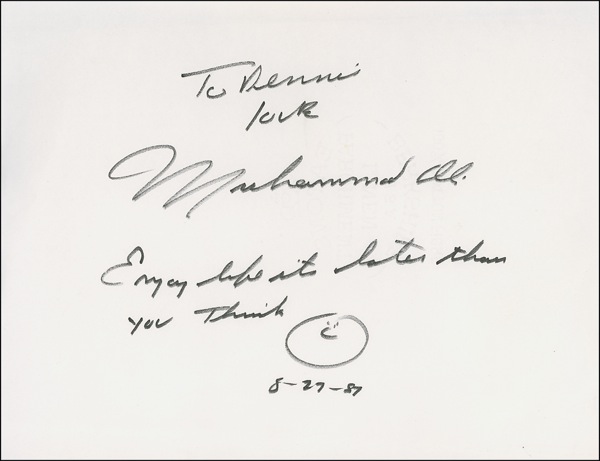 To Dennis
love
Muhammad Ali.
Enjoy life its later than
you Think
8-27-87